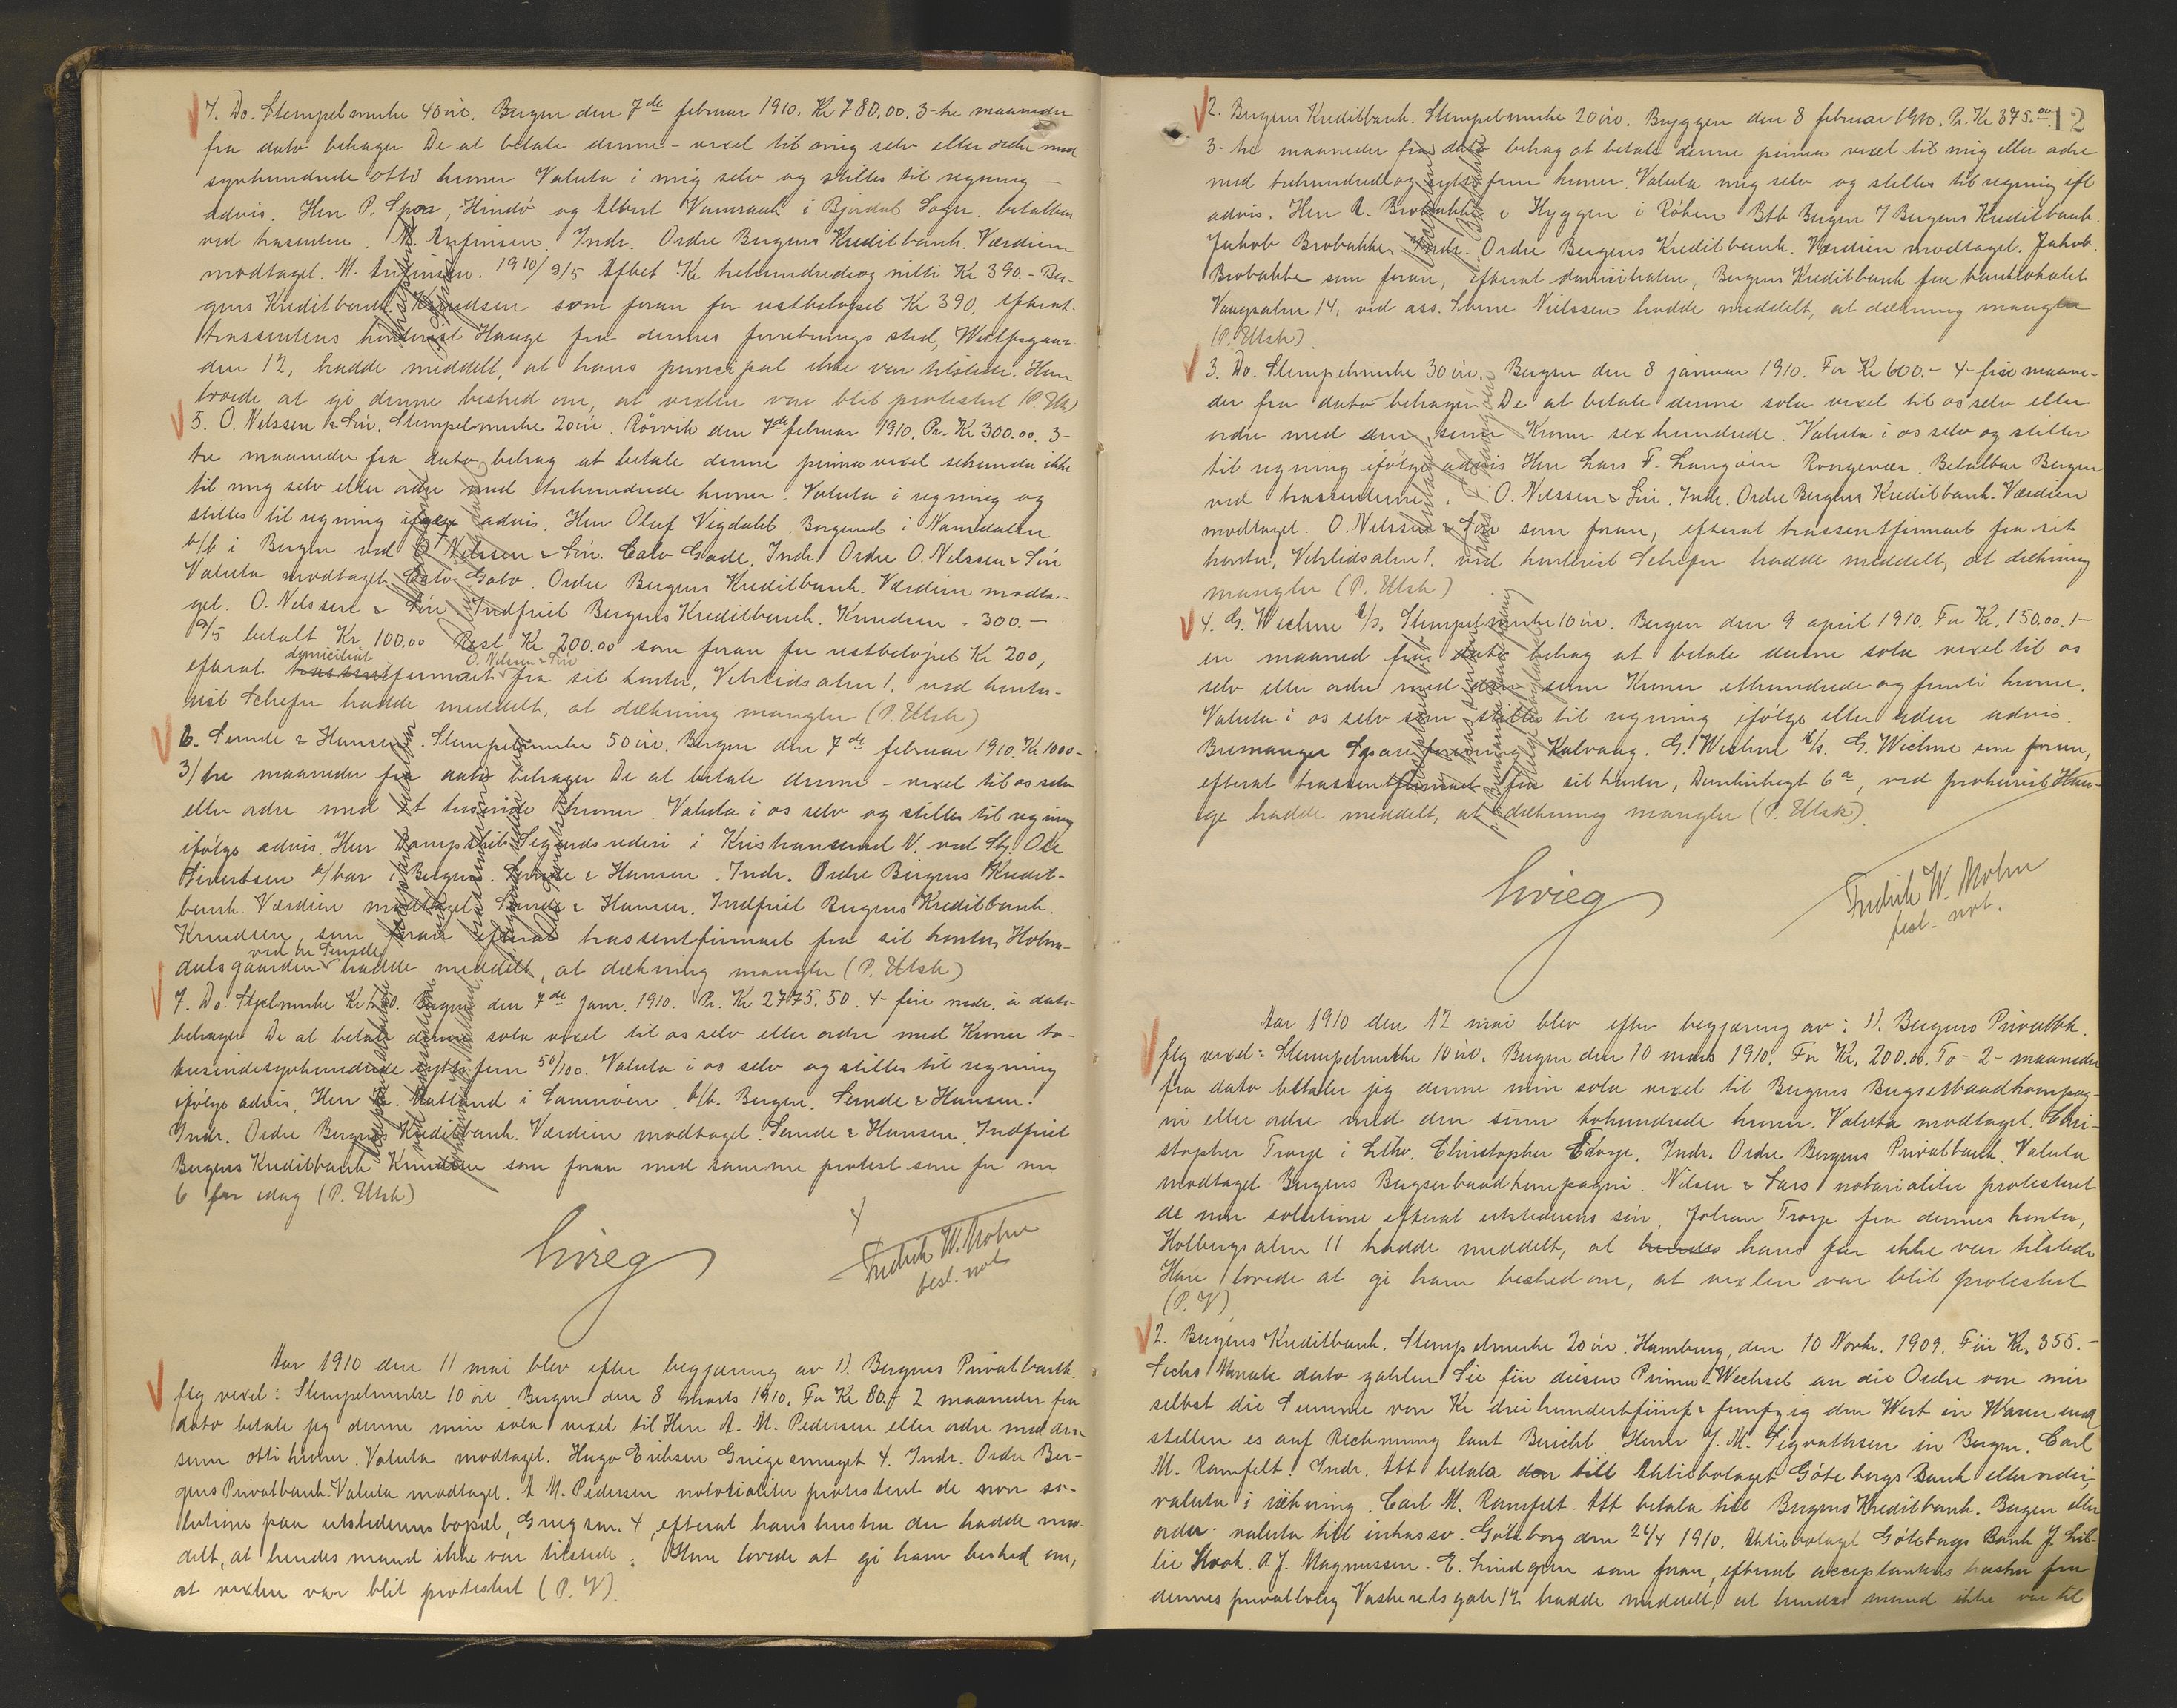 4. Do. Stempelmerke 40 øre. Bergen den 7de februar 1910. Kr 780.00. 3-tre maaneder
fra dato behager De at betale denne - vexel til mig selv eller ordre med
syvhundrede otti kroner Valuta i mig selv og stilles til regning -
advis. Herr P. Spon, Hindø og Albert Vamraak i Bjordal Sogn. betalbar
ved trasenten. M. Anfinsen. Indr. Ordre Bergens Kreditbank. Værdien
modtaget. M. Anfinsen. 1910/9/5 Afbet Kr trehundredeog nitti Kr 390.- Ber-
gens Kreditbank. Knudsen som foran for restbeløpet Kr 390, efterat
trassentens kontorist Hauge fra dennes forretnings sted,
den 12, hadde meddelt, at hans principal ikke var tilstede. Han
lovede at gi denne beshed om, at vexlen var blit protestert (P. Utsk)
5. O. Nilssen & Søn. Stempelmerke 20 øre. Rørvik den 7de februar 1910. Pr. Kr 300.00. 3-
tre maaneder fra dato behag at betale denne prima vexel sekunda ikke
til mig selv eller ordre med trehundrede kroner. Valuta i regning og
stilles til regning ifølge advis. Herr Oluf Vigdahl. Borgund i Namdalen
b/b i Bergen ved O. Nilssen & Søn. Calv Gade. Indr. Ordre O. Nilssen & Søn
Valuta modtaget. Ordre Bergens Kreditbank. Værdien modta-
get. O. Nilssen & Søn Indfriet Bergens Kreditbank. Knudsen - 300.-
9/5 betalt Kr. 100.00 Rest Kr 200.00 som foran for restbeløpet Kr 200,
domiciliat O. Nilssen & Søn
efterat firmaet fra sit kontor, Vetrlidsalm 1, ved konto-
rist Schefer hadde meddelt, at dækning mangler (P. Utsk)
6. Semde & Hansen. Stempelmerke 50 øre. Bergen den 7de februar 1910. Kr 1000-
3/tre maaneder fra dato behager De at betale denne - vexel til os selv
eller ordre med et tusinde kroner. Valuta i os selv og stilles til regning
ifølge advis. Herr Dampskib Sigurds rederi i Kristiansund N. ved Ole
Sivertsen b/bar i Bergen. Semde & Hansen. Indr. Ordre Bergens Kredit-
bank. Værdien modtaget. Semde & Hansen. Indfriet Bergens Kreditbank.
Knudsen som foran efterat trassentfirmaet fra sit kontor, Holm-
ved hr Semde
dalsgaarden hadde meddelt, at dækning mangler (P. Utsk)
7. Do. Bergen den 7de janr. 1910. Pr. Kr 2775.50. 4- fire mdr. à dato
behager De at betale denne sola vexel til os selv eller ordre med Kroner to-
tusindesyvhundrede sytti fem 50/100. Valuta i os selv og stilles til regning
ifølge advis, Herr Hatland i Samnøen. b/b. Bergen. Semde & Hansen.
Indr. Ordre Bergens Kreditbank. Værdien modtaget. Semde & Hansen. Indfriet
Bergens Kreditbank Knudsen som foran med samme protest som for nr
6 for idag (P. Utsk)
Grieg
Fredrik W. Mohn
besl. not
Aar 1910 den 11 mai blev efter begjæring av 1). Bergens Privatbank
flg vexel: Stempelmerke 10 øre Bergen den 8 marts 1910. For Kr 80.- 2 maaneder fra
dato betale jeg denne min sola vexel til Herr A. M. Pedersen eller ordre med den
sum otti kroner. Valuta modtaget. Hugo Eriksen Griegsmuget 4. Indr. Ordre Ber-
gens Privatbank. Valuta modtaget. A M. Pedersen notarialiter protestert de non so-
lutione paa utstederens bopæl, Griegsm. 4, efterat hans hustru der hadde med-
delt, at hendes mand ikke var tilstede. Hun lovede at gi ham beshed om,
at vexlen var blit protestert (P. V).
12
2. Bergens Kreditbank. Stempelmerke 20 øre. Bryggen den 8 februar 1910. Pr. Kr 375.00
3- tre maaneder fra dato behag at betale denne prima vexel til mig eller ordre
med trehundredeog sytti fem kroner. Valuta mig selv og stilles til regning ifl
advis. Herr A. Brobakke i Hyggen i Røken Btb Bergen I Bergens Kreditbank.
Jakob Brobakke. Indr. Ordre Bergens Kreditbank. Værdien modtaget. Jakob
Brobakke som foran, efterat domiciliaten, Bergens Kreditbank fra banklokalet
Vaagsalm 14, ved ass. Nielssen hadde meddelt, at dækning mangler
(P. Utsk)
3. Do. Stempelmerke 30 øre. Bergen den 8 januar 1910. For Kr 600.- 4- fire maane-
der fra dato behager De at betale denne sola vexel til os selv eller
ordre med den sum Kroner sexhundrede. Valuta i os selv og stilles
til regning ifølge advis Herr Lars T. Langøen Rongevær. Betalbar Bergen
ved trassenterne. O. Nilssen & Søn. Indr. Ordre Bergens Kreditbank. Værdien
modtaget. O. Nilssen & Søn som foran, efterat trassentfirmaet fra sit
kontor, Vetrlidsalm 1. ved kontorist Schefer hadde meddelt, at dækning
mangler (P. Utsk)
4. G. Wiehne A/s. Stempelmerke 10 øre. Bergen den 9 april 1910. For Kr. 150.00. 1-
en maaned fra dato behag at betale denne sola vexel til os
selv eller ordre med den sum Kroner ethundrede og femti kroner.
Valuta i os selv som stilles til regning ifølge eller uden advis.
Bremanger Spareforening Kalvaag. G. Wiehne A/s. G. Wiehne som foran,
efterat trassentfirmaet fra sit kontor, 6a, ved prokurist Hau-
ge hadde meddelt, at dækning mangler (P. Utsk)
Grieg
Fredrik W. Mohn
besl. not.
Aar 1910 den 12 mai blev efter begjæring av: 1). Bergens Privatbk.
flg vexel: Stempelmerke 10 øre. Bergen den 10 mars 1910. For Kr. 200.00. To - 2 - maaneder
fra dato betaler jeg denne min sola vexel til Bergens Bugserbaadkompag-
ni eller ordre med den sum tohundrede kroner. Valuta modtaget. Chri-
stopher Troye i Christopher Troye. Indr. Ordre Bergens Privatbank. Valuta
modtaget Bergens Bugserbaadkompagni. Nilsen & Lars notarialiter protestert
de non solutione efterat utstederens søn, Johan Troye fra dennes kontor,
Holbergsalm 11 hadde meddelt, at hendes hans far ikke var tilstede
Han lovede at gi ham beshed om, at vexlen var blit protestert
(P. V)
2. Bergens Kreditbank. Stempelmerke 20 øre. Hamburg, den 10 Novbr. 1909. Für Kr. 355.-
Sechs Monate dato zahlen Sie für diesen Prima-Wechsel an die Ordre von mir
selbst die Summe von Kr dreihundertfünf & funfzig den Wert in Waren und
stellen es auf Rechnung laut Bericht. Herrn J. M. Sigvathsen in Bergen. Carl
M. Ramfelt. Indr. Att betala den till Aktiebolaget Göteborgs Bank eller order,
valuta i räkning. Carl M. Ramfelt. Att betala till Bergens Kreditbank. Bergen eller
order valuta till inkasso. Göteborg den 26/4 1910. Aktiebolaget Göteborgs Bank J. Lil-
lie Hook. A J. Magnusson. E. Lindgren som foran, efterat acceptantens hustru fra
dennes privatbolig gate 12 hadde meddelt, at hendes mand ikke var til